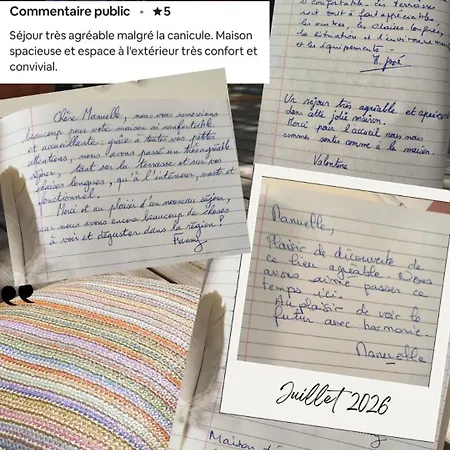 Commentaire public • ★5
Séjour très agréable malgré la canicule. Maison
spacieuse et espace à l'extérieur très confort et
convivial.
Chère Manuelle, nous vous remercions
beaucoup pour votre maison si confortable
et accueillante. grâce à toutes vos petites
attentions, nous avons passé un très agréable
séjour, tant sur la terrasse et sur vos
chaises longues, qu'à l'intérieur, vaste et
fonctionnel.
Merci et au plaisir d'un nouveau séjour,
car nous avons encore beaucoup de choses
à voir et déguster dans la région!
Fanny
confortable. les terrasses
sont tout à fait appréciables
la situation et l'environnement
et les équipements.
Un séjour très agréable et
dans cette jolie maison.
Merci pour l'accueil nous nous
sommes sentis comme à la maison.
Valentine
Manuelle,
Plaisir de découverte de
ce lieu agréable. Nous
avons aimé passer ce
temps ici.
Au plaisir de voir le
futur avec harmonie.
Manuelle
Juillet 2026
Maison